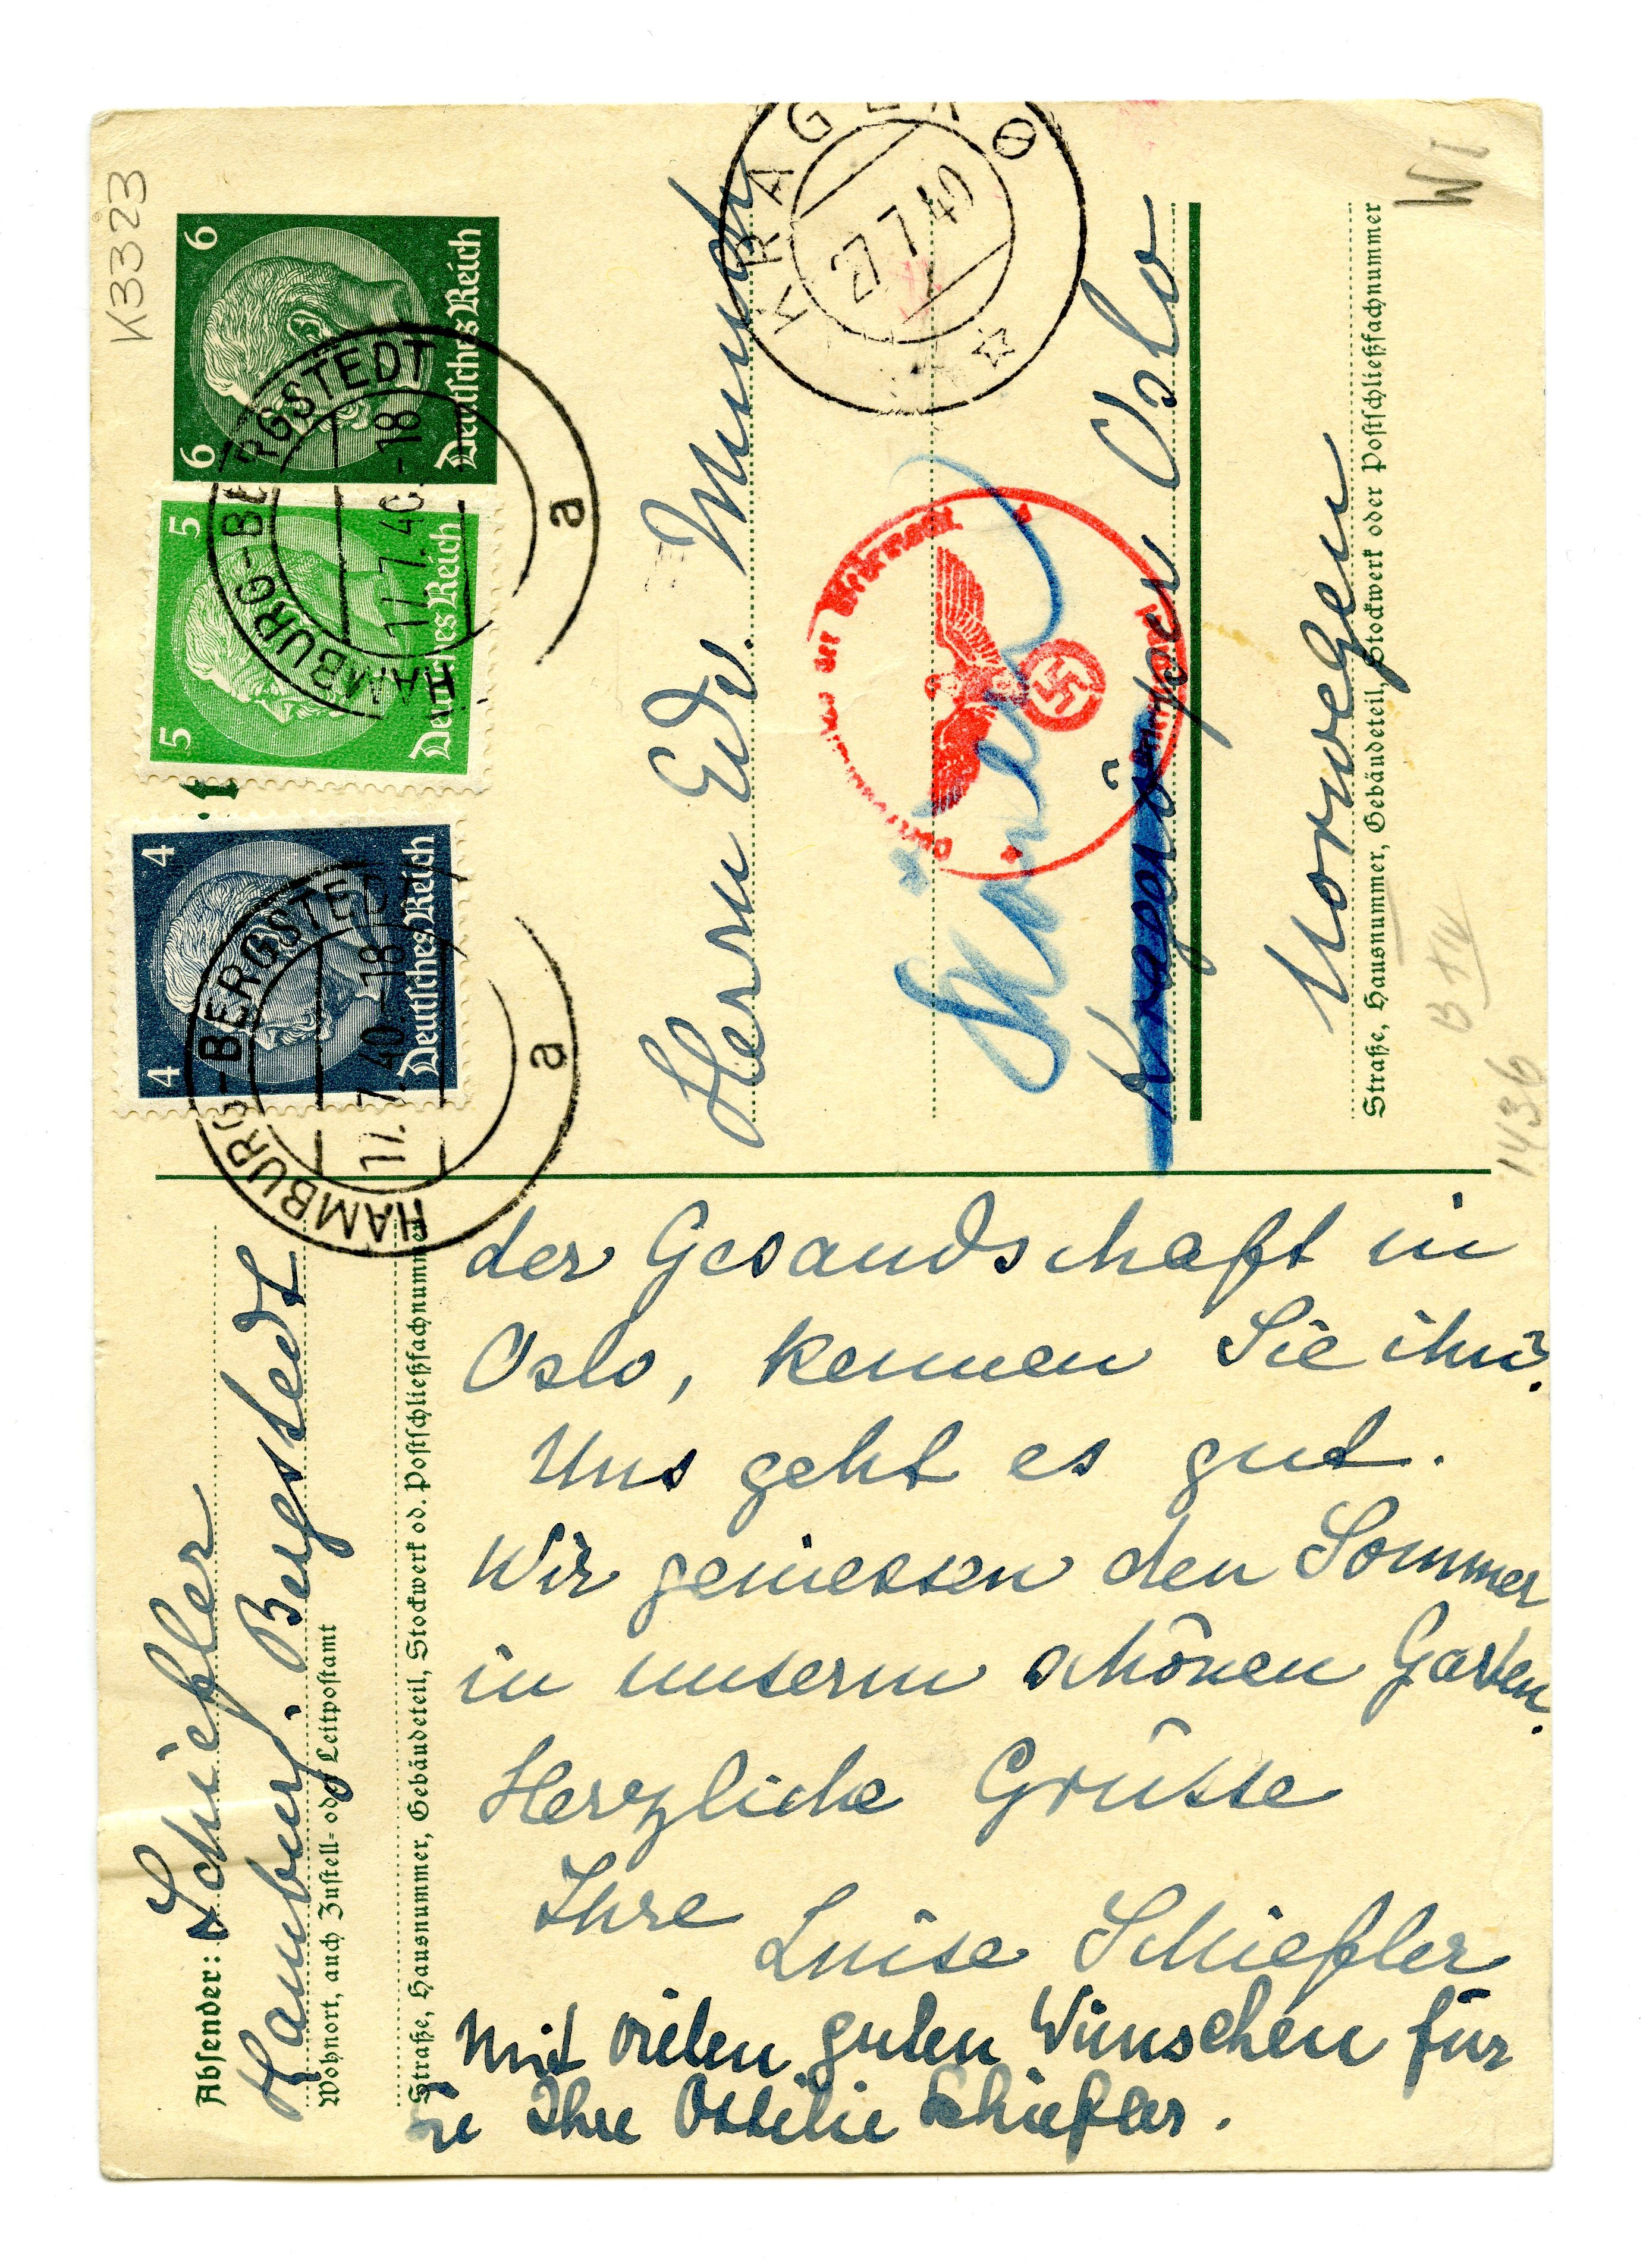 K3323
6 6
Deutsches Reich
5 5
Deutsches Reich
4 4
Deutsches Reich
HAMBURG-BERGSTEDT
17.7.40.-18
a
HAMBURG-BERGSTEDT
17.7.40.-18
a
KRAGERØ
27 7 40
Absender: Schiefler
Hamburg. Bergstedt
Wohnort, auch Zustell- oder Leitpostamt
Straße, Hausnummer, Gebäudeteil, Stockwerk od. Postschließfachnummer
Herrn Edv. Munch
Sköien
Kragerö per Oslo
Norwegen
Straße, Hausnummer, Gebäudeteil, Stockwerk oder Postschließfachnummer
der Wehrmacht
W I
1436
der Gesandschaft in
Oslo, kennen Sie ihn?
Uns geht es gut.
Wir geniessen den Sommer
in unserm schönen Garten.
Herzliche Grüsse
Ihre
Luise Schiefler
Mit vielen guten Wünschen für
Sie Ihre Ottilie Schiefler.